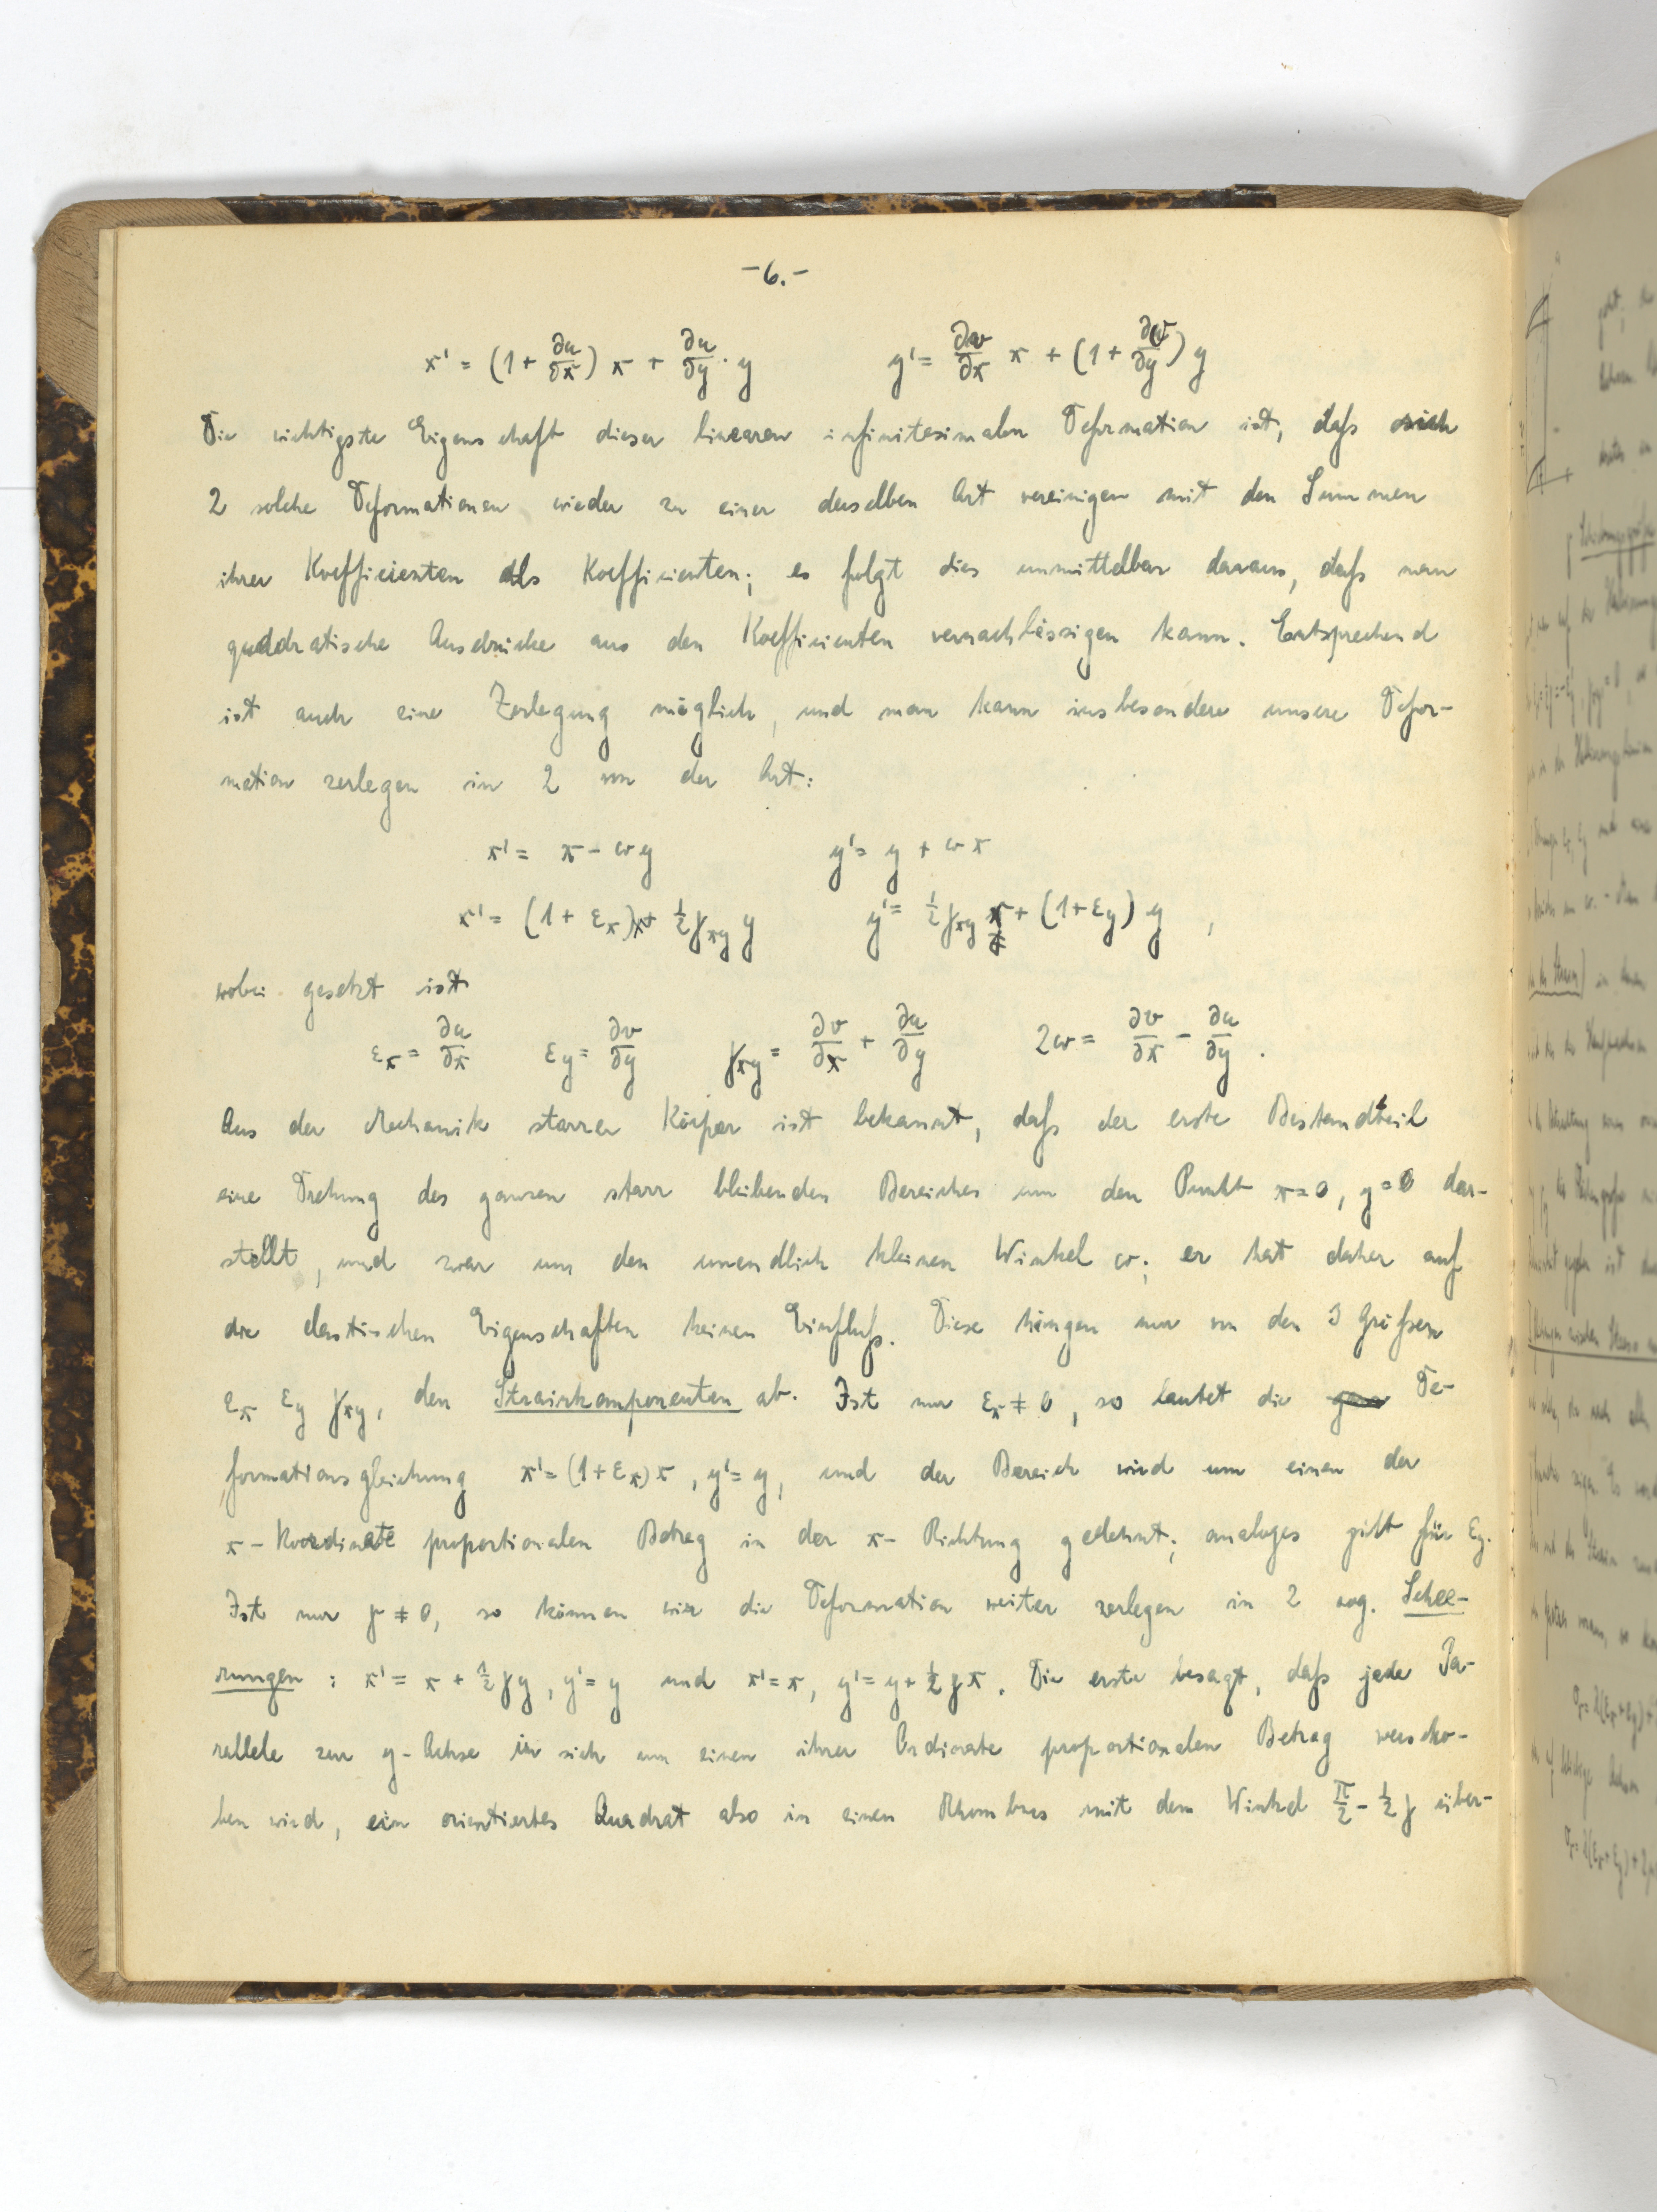 -6.-
x' = (1 + ∂u/∂x) x + ∂u/∂y · y y' = ∂v/∂x x + (1 + ∂v/∂y) y
Die wichtigste Eigenschaft dieser linearen infinitesimalen Deformation ist, daſs sich
2 solche Deformationen wieder zu einer derselben Art vereinigen mit den Summen
ihrer Koefficienten als Koefficienten; es folgt dies unmittelbar daraus, daſs man
quadratische Ausdrücke aus den Koefficienten vernachlässigen kann. Entsprechend
ist auch eine Zerlegung möglich, und man kann insbesondere unsere Defor-
mation zerlegen in 2 von der Art:
x' = x - ωy y' = y + ωx
x' = (1 + εx)x + ½γxy y y' = ½γxy x + (1+εy) y ,
wobei gesetzt ist
εx = ∂u/∂x εy = ∂v/∂y γxy = ∂v/∂x + ∂u/∂y 2ω = ∂v/∂x - ∂u/∂y .
Aus der Mechanik starrer Körper ist bekannt, daſs der erste Bestandteil
eine Drehung des ganzen starr bleibenden Bereiches um den Punkt x=0, y=0 dar-
stellt, und zwar um den unendlich kleinen Winkel ω; er hat daher auf
die elastischen Eigenschaften keinen Einfluſs. Diese hängen nur von den 3 Gröſsen
εx εy γxy, den Strainkomponenten ab. Ist nur εx ≠ 0, so lautet die De-
formationsgleichung x' = (1+εx)x, y' = y, und der Bereich wird um einen der
x-Koordinate proportionalen Betrag in der x-Richtung gedehnt; analoges gilt für εy.
Ist nur γ ≠ 0, so können wir die Deformation weiter zerlegen in 2 sog. Schee-
rungen: x' = x + ½γy, y' = y und x' = x, y' = y + ½γx. Die erste besagt, daſs jede Pa-
rallele zur y-Achse in sich um einen ihrer Ordinate proportionalen Betrag verscho-
ben wird, ein orientiertes Quadrat also in einen Rhombus mit dem Winkel π/2 - ½γ über-